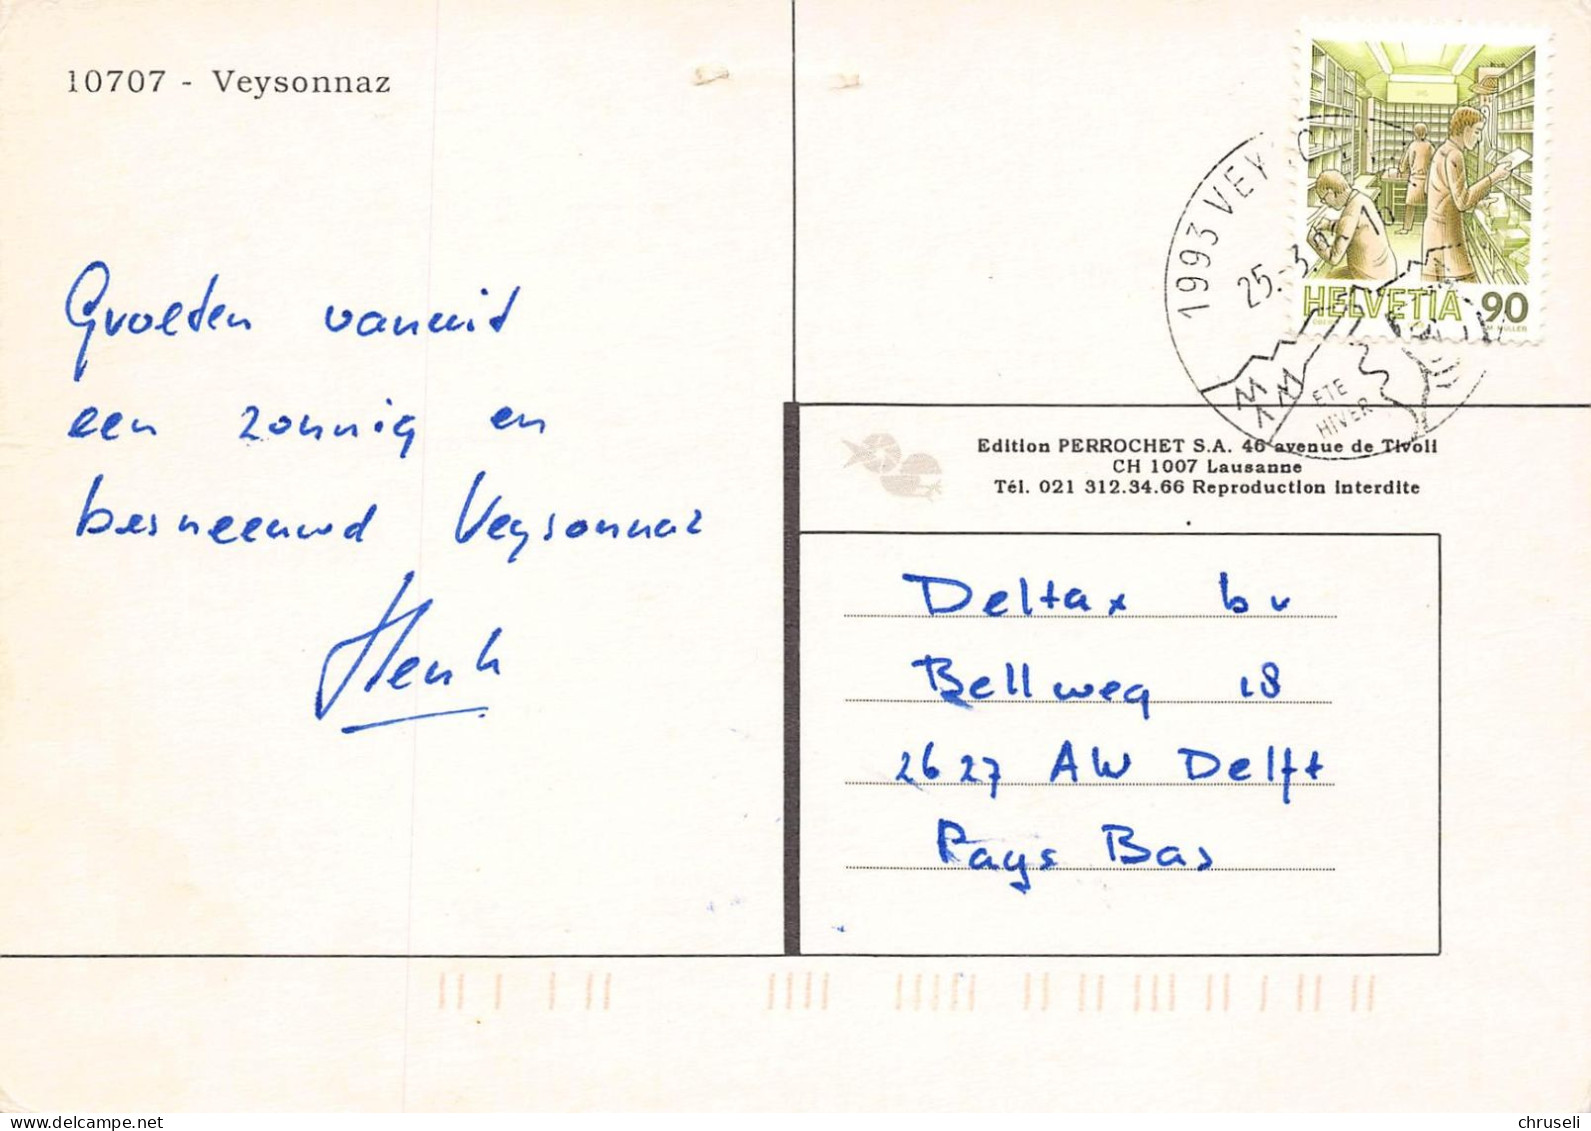 10707 - Veysonnaz
Groeten vanuit
een zonnig en
besneeuwd Veysonnaz
Henk
HELVETIA 90
1993 VEY
25.-3.
ETE
HIVER
Edition PERROCHET S.A. 46 avenue de Tivoli
CH 1007 Lausanne
Tél. 021 312.34.66 Reproduction interdite
Deltax bv
Bellweg 18
2627 AW Delft
Pays Bas
chruseli